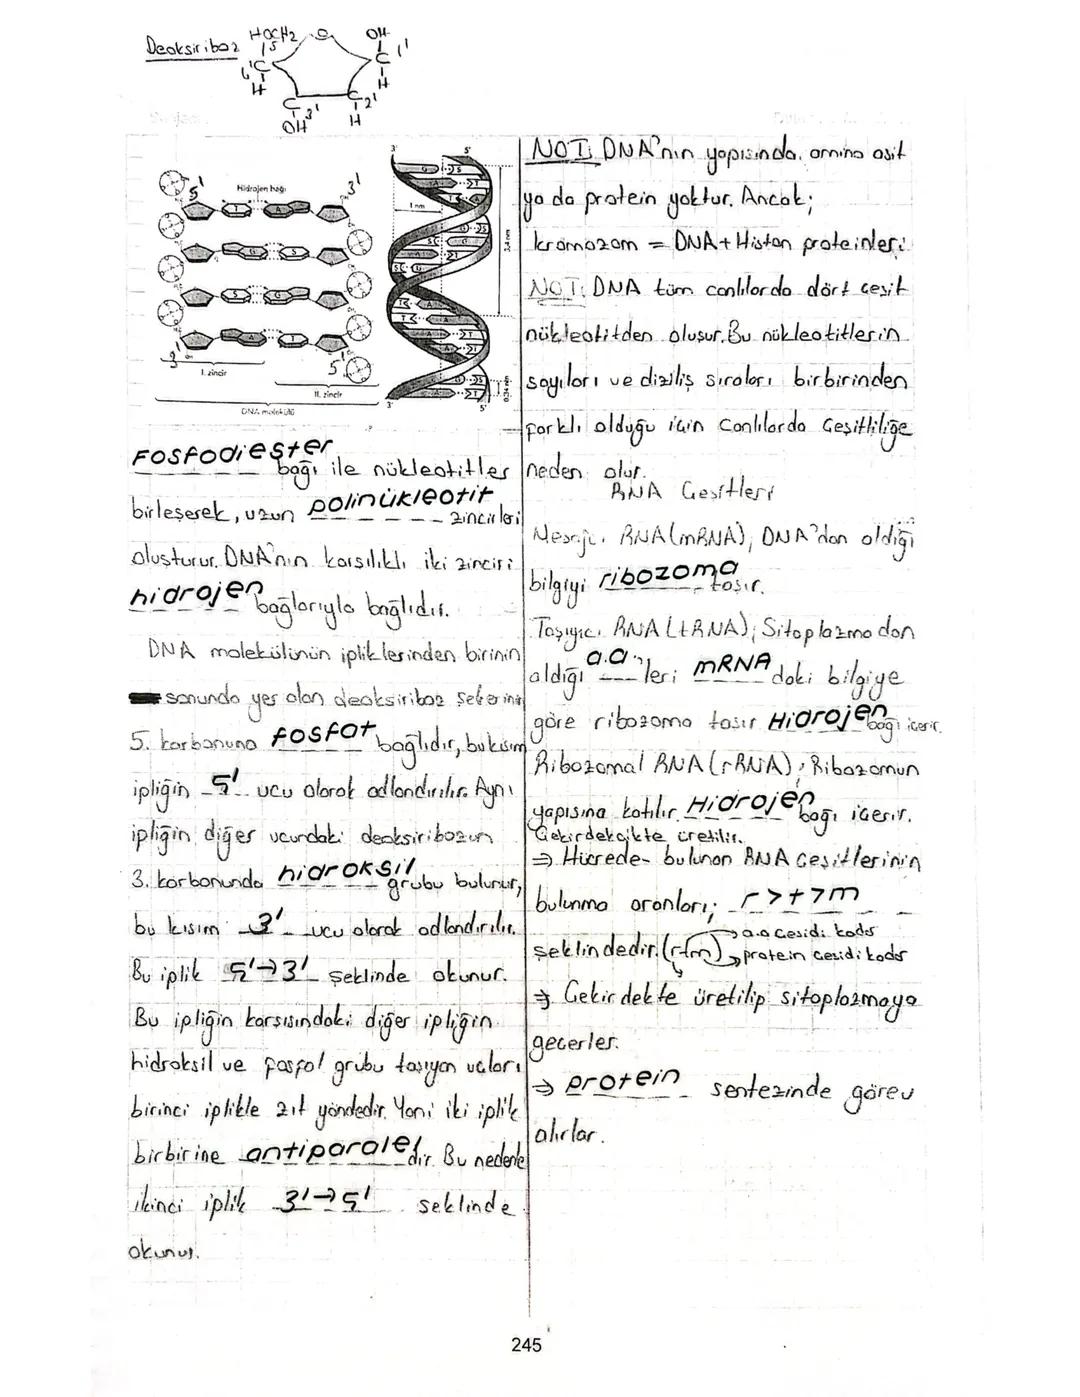 Deoksiriboz
HOCH2
O
OH
5
C
1'
4'
C
H
H
C
3'
C
2'
OH
H
5'
Hidrojen bağı
3'
T
A
G
S
S
G
A
T
3'
5'
I. zincir
II. zincir
DNA molekülü
3'
5'
1 nm
3,4 nm
0,34 nm
3'
5'
FOSFODİESTER
bağı ile nükleotitler
birleşerek, uzun polinükleotit zincirleri
oluşturur. DNA'nın karşılıklı iki zinciri
hidrojen bağlarıyla bağlıdır.
DNA molekülünün ipliklerinden birinin
sonunda yer alan deoksiriboz şekerinin
5. karbonuna fosfat bağlıdır, bu kısım
ipliğin 5' ucu olarak adlandırılır. Aynı
ipliğin diğer ucundaki deoksiribozun
3. karbonunda hidroksil grubu bulunur,
bu kısım 3' ucu olarak adlandırılır.
Bu iplik 5'→3' şeklinde okunur.
Bu ipliğin karşısındaki diğer ipliğin
hidroksil ve fosfat grubu taşıyan uçları
birinci iplikle zıt yöndedir. Yani iki iplik
birbirine antiparaleldir. Bu nedenle
ikinci iplik 3'→5' şeklinde
okunur.
NOT: DNA'nın yapısında amino asit
ya da protein yoktur. Ancak;
kromozom = DNA+Histon proteinleri
NOT: DNA tüm canlılarda dört çeşit
nükleotitden oluşur. Bu nükleotitlerin
sayıları ve diziliş sıraları birbirinden
farklı olduğu için canlılarda çeşitliliğe
neden olur.
RNA Çeşitleri
Mesajcı RNA(mRNA); DNA'dan aldığı
bilgiyi ribozoma taşır.
Taşıyıcı RNA (tRNA); Sitoplazmadan
aldığı a.a leri mRNA daki bilgiye
göre ribozoma taşır Hidrojen bağı içerir.
Ribozomal RNA(rRNA); Ribozomun
yapısına katılır. Hidrojen bağı içerir.
Çekirdekçikte üretilir.
⇒ Hücrede bulunan RNA çeşitlerinin
bulunma oranları; r>t>m
→ a.a çeşidi kadar
şeklindedir. (rtm) → protein çeşidi kadar
⇒ Çekirdekte üretilip sitoplazmaya
geçerler.
⇒ protein sentezinde görev
alırlar.
245